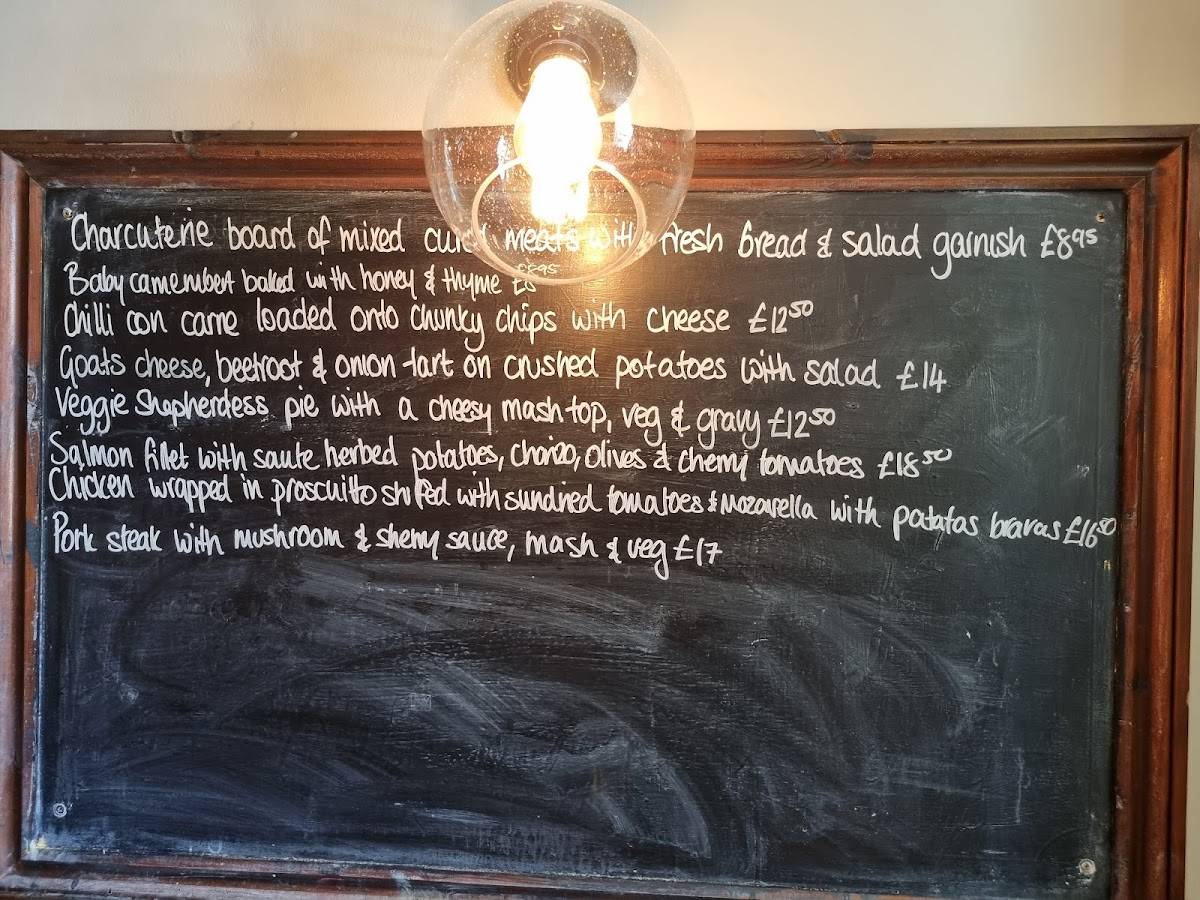 Charcuterie board of mixed cured meats with fresh bread & salad garnish £8.95
Baby camembert baked with honey & thyme £8.95
Chilli con carne loaded onto chunky chips with cheese £12.50
Goats cheese, beetroot & onion tart on crushed potatoes with salad £14
Veggie Shepherdess pie with a cheesy mash top, veg & gravy £12.50
Salmon fillet with saute herbed potatoes, chorizo, olives & cherry tomatoes £18.50
Chicken wrapped in proscuitto stuffed with sundried tomatoes & Mozarella with patatas bravas £16.50
Pork steak with mushroom & sherry sauce, mash & veg £17